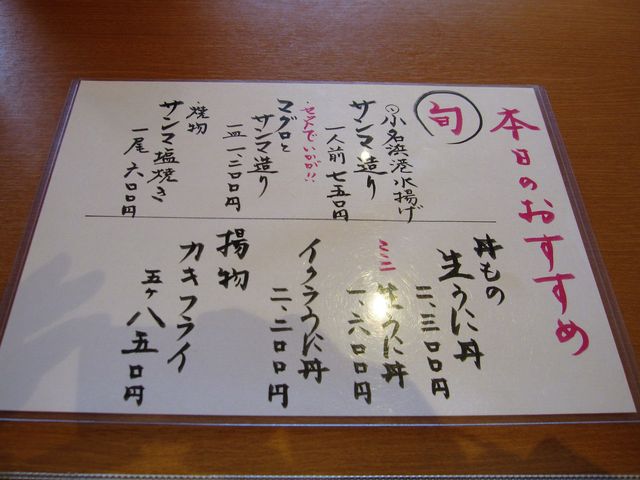 本日のおすすめ
旬
小名浜港水揚げ
サンマ造り
一人前 七五〇円
・セットでいかが!!
マグロと
サンマ造り
一皿 一、三〇〇円
・焼物
サンマ塩焼き
一尾 六〇〇円
丼もの
生うに丼
二、三〇〇円
ミニ生うに丼
一、六〇〇円
イクラうに丼
二、二〇〇円
揚物
カキフライ
五ヶ 八五〇円